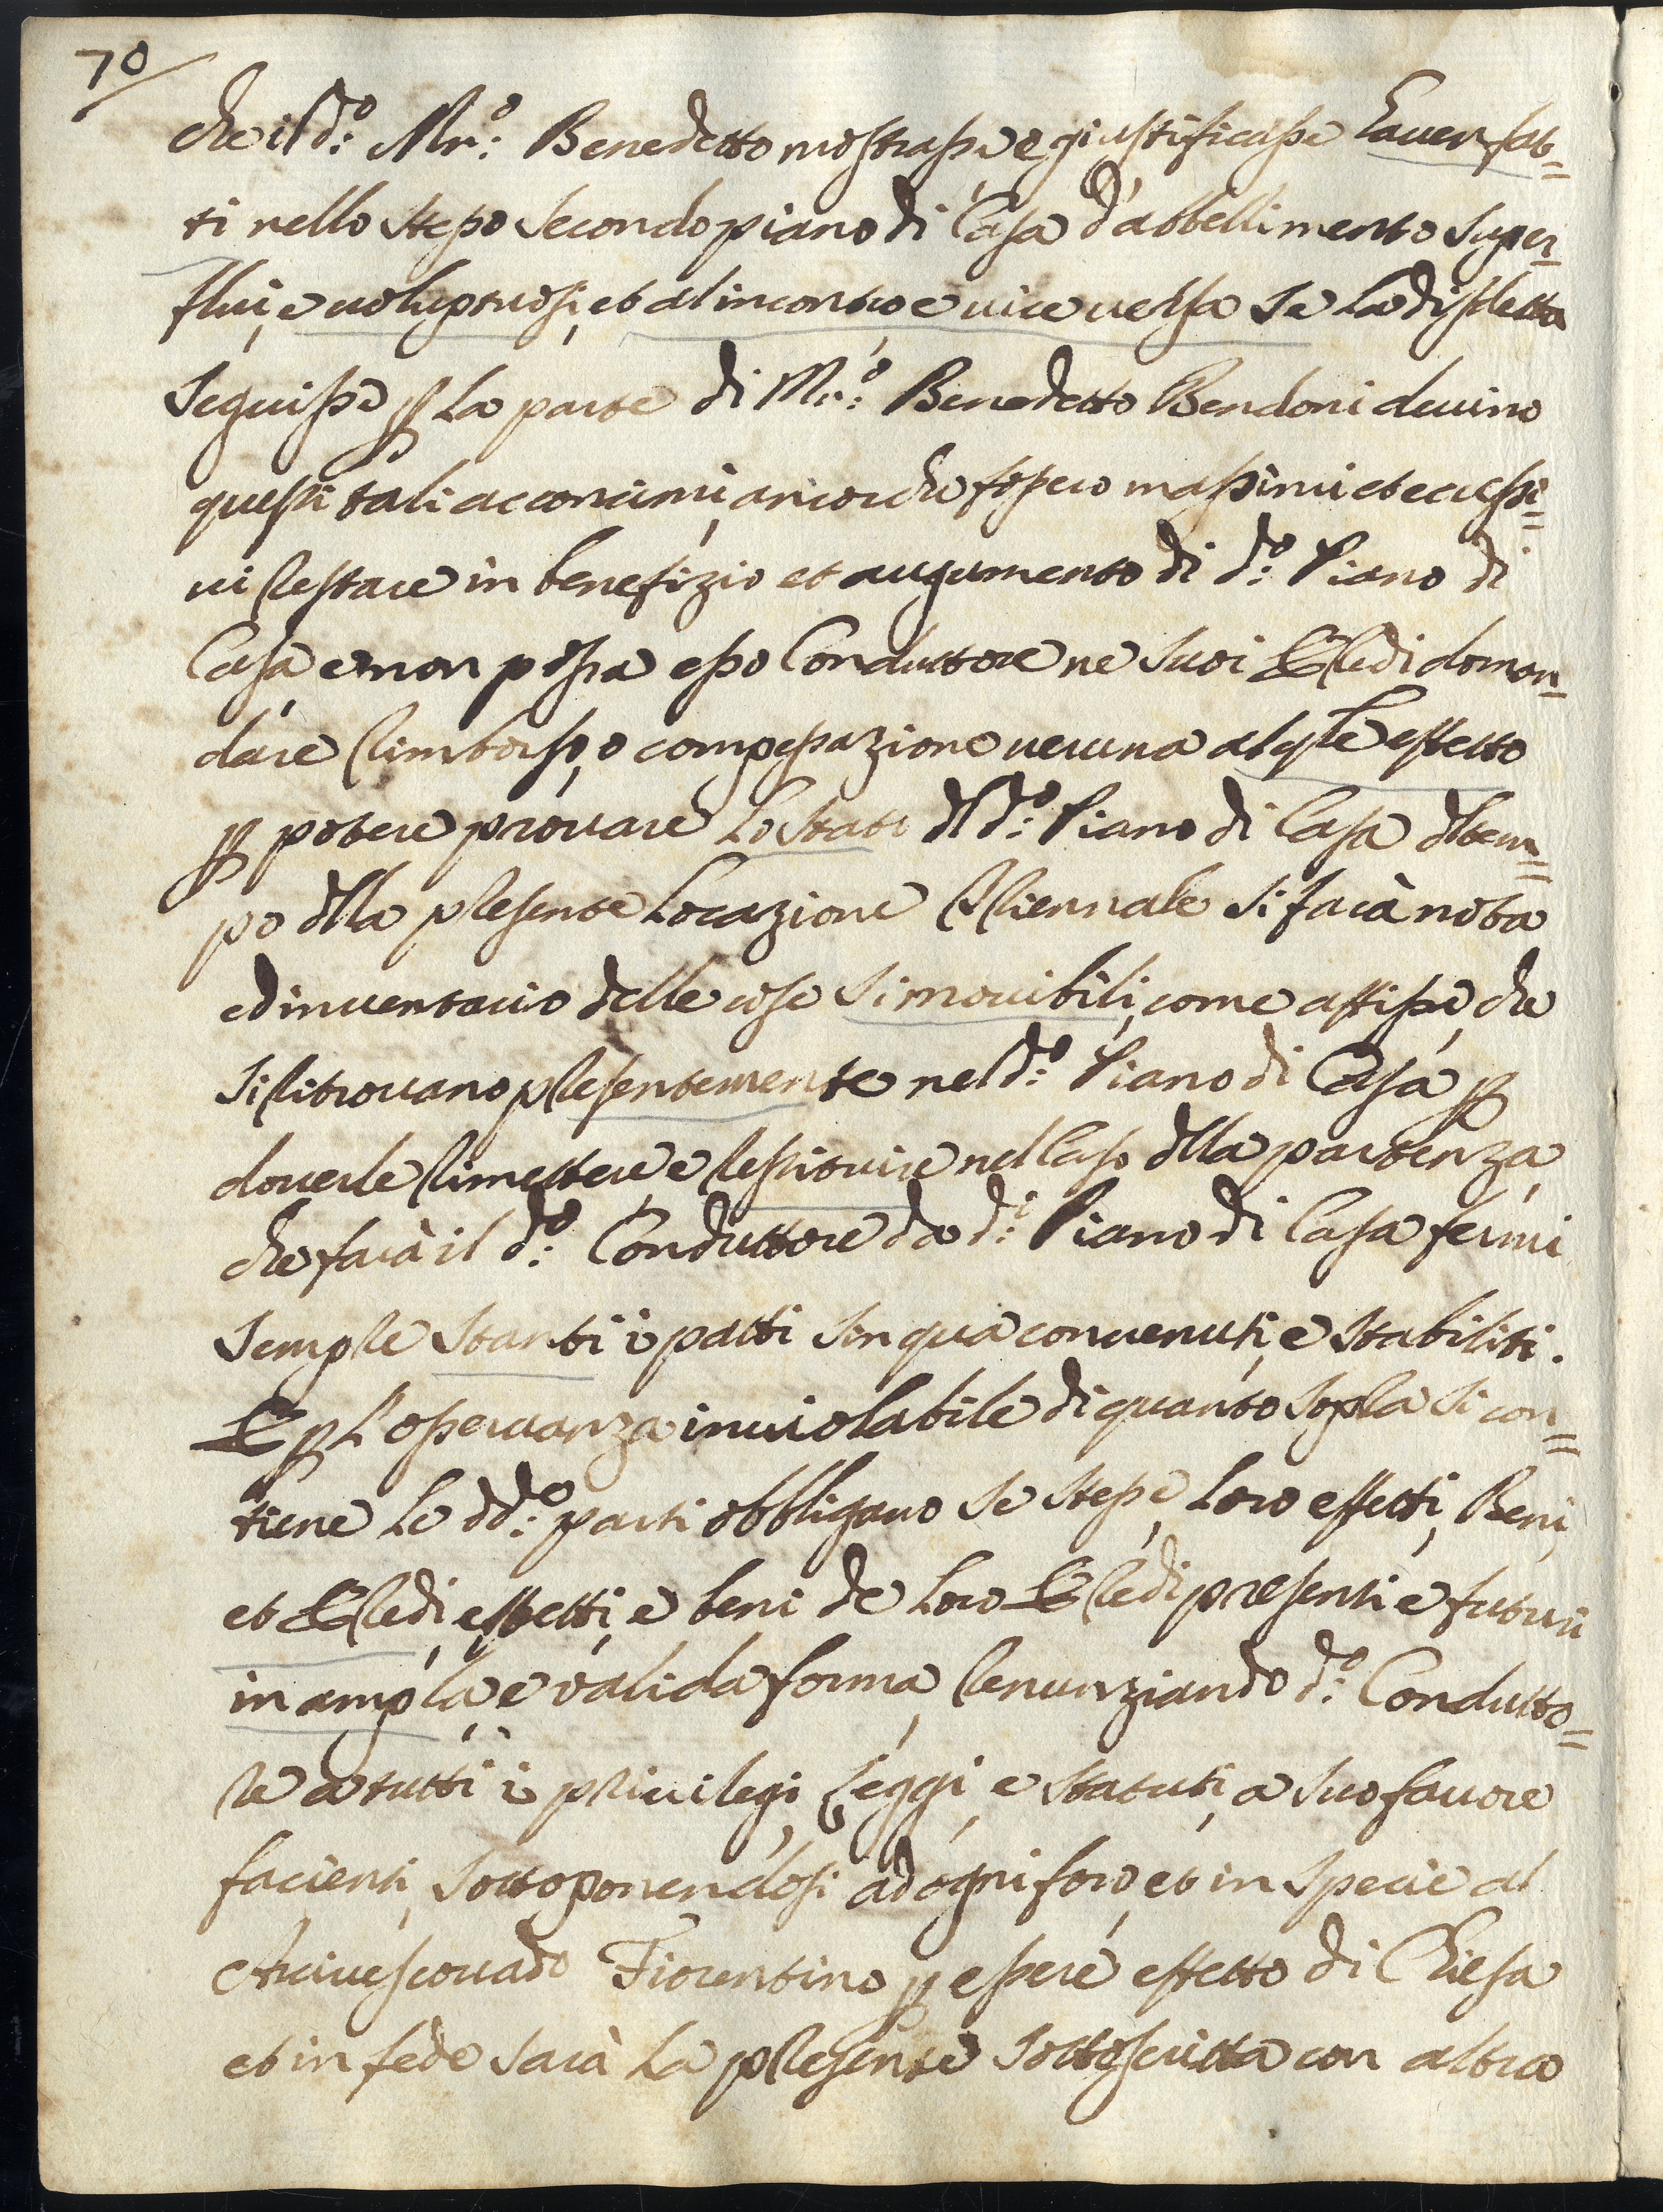 70
che il d.º Mr.º Benedetto mostrasse e giustificasse haver fat=
ti nello stesso secondo piano di Casa d'abbellimento super-
flui, e voluptuosi, et al incontro e vice versa se la disdetta
seguisse p la parte di Mr.º Benedetto Bendoni devino
questi tali acconcimi, ancorche fossero massimi et eccessi=
vi restare in benefizio et augumento di d.º Piano di
Casa, e non possa esso Conduttore ne suoi Eredi doman-
dare rimborso, o compesazione veruna al qle effetto
p potere provare lo stato dl d.º Piano di Casa dl tem=
po dlla presente Locazione Triennale si farà nota
ed inventario delle cose simovibili, come affisse, che
si ritrovano presentemente nel d.º Piano di Casa, p
doverle rimettere e restituire nel Caso dlla partenza,
che farà il d.º Conduttore da d.i Piano di Casa fermi
sempre stanti i patti sin qua convenuti, e stabiliti.
E p l'osservanza inviolabile di quanto sopra si con=
tiene le dd.º parti obbligano se stesse, loro effetti, Beni,
et Eredi, effetti, e beni de loro Eredi presenti e futuri
in ampla, e valida forma, renunziando d.º Condutto=
re a tutti i privilegi, leggi, e statuti, a suo favore
facienti, sottoponendosi ad ogni foro, et in specie al
Arcivescovado Fiorentino p essere effetto di Chiesa
et in fede sarà la presente sottoscritta con altra